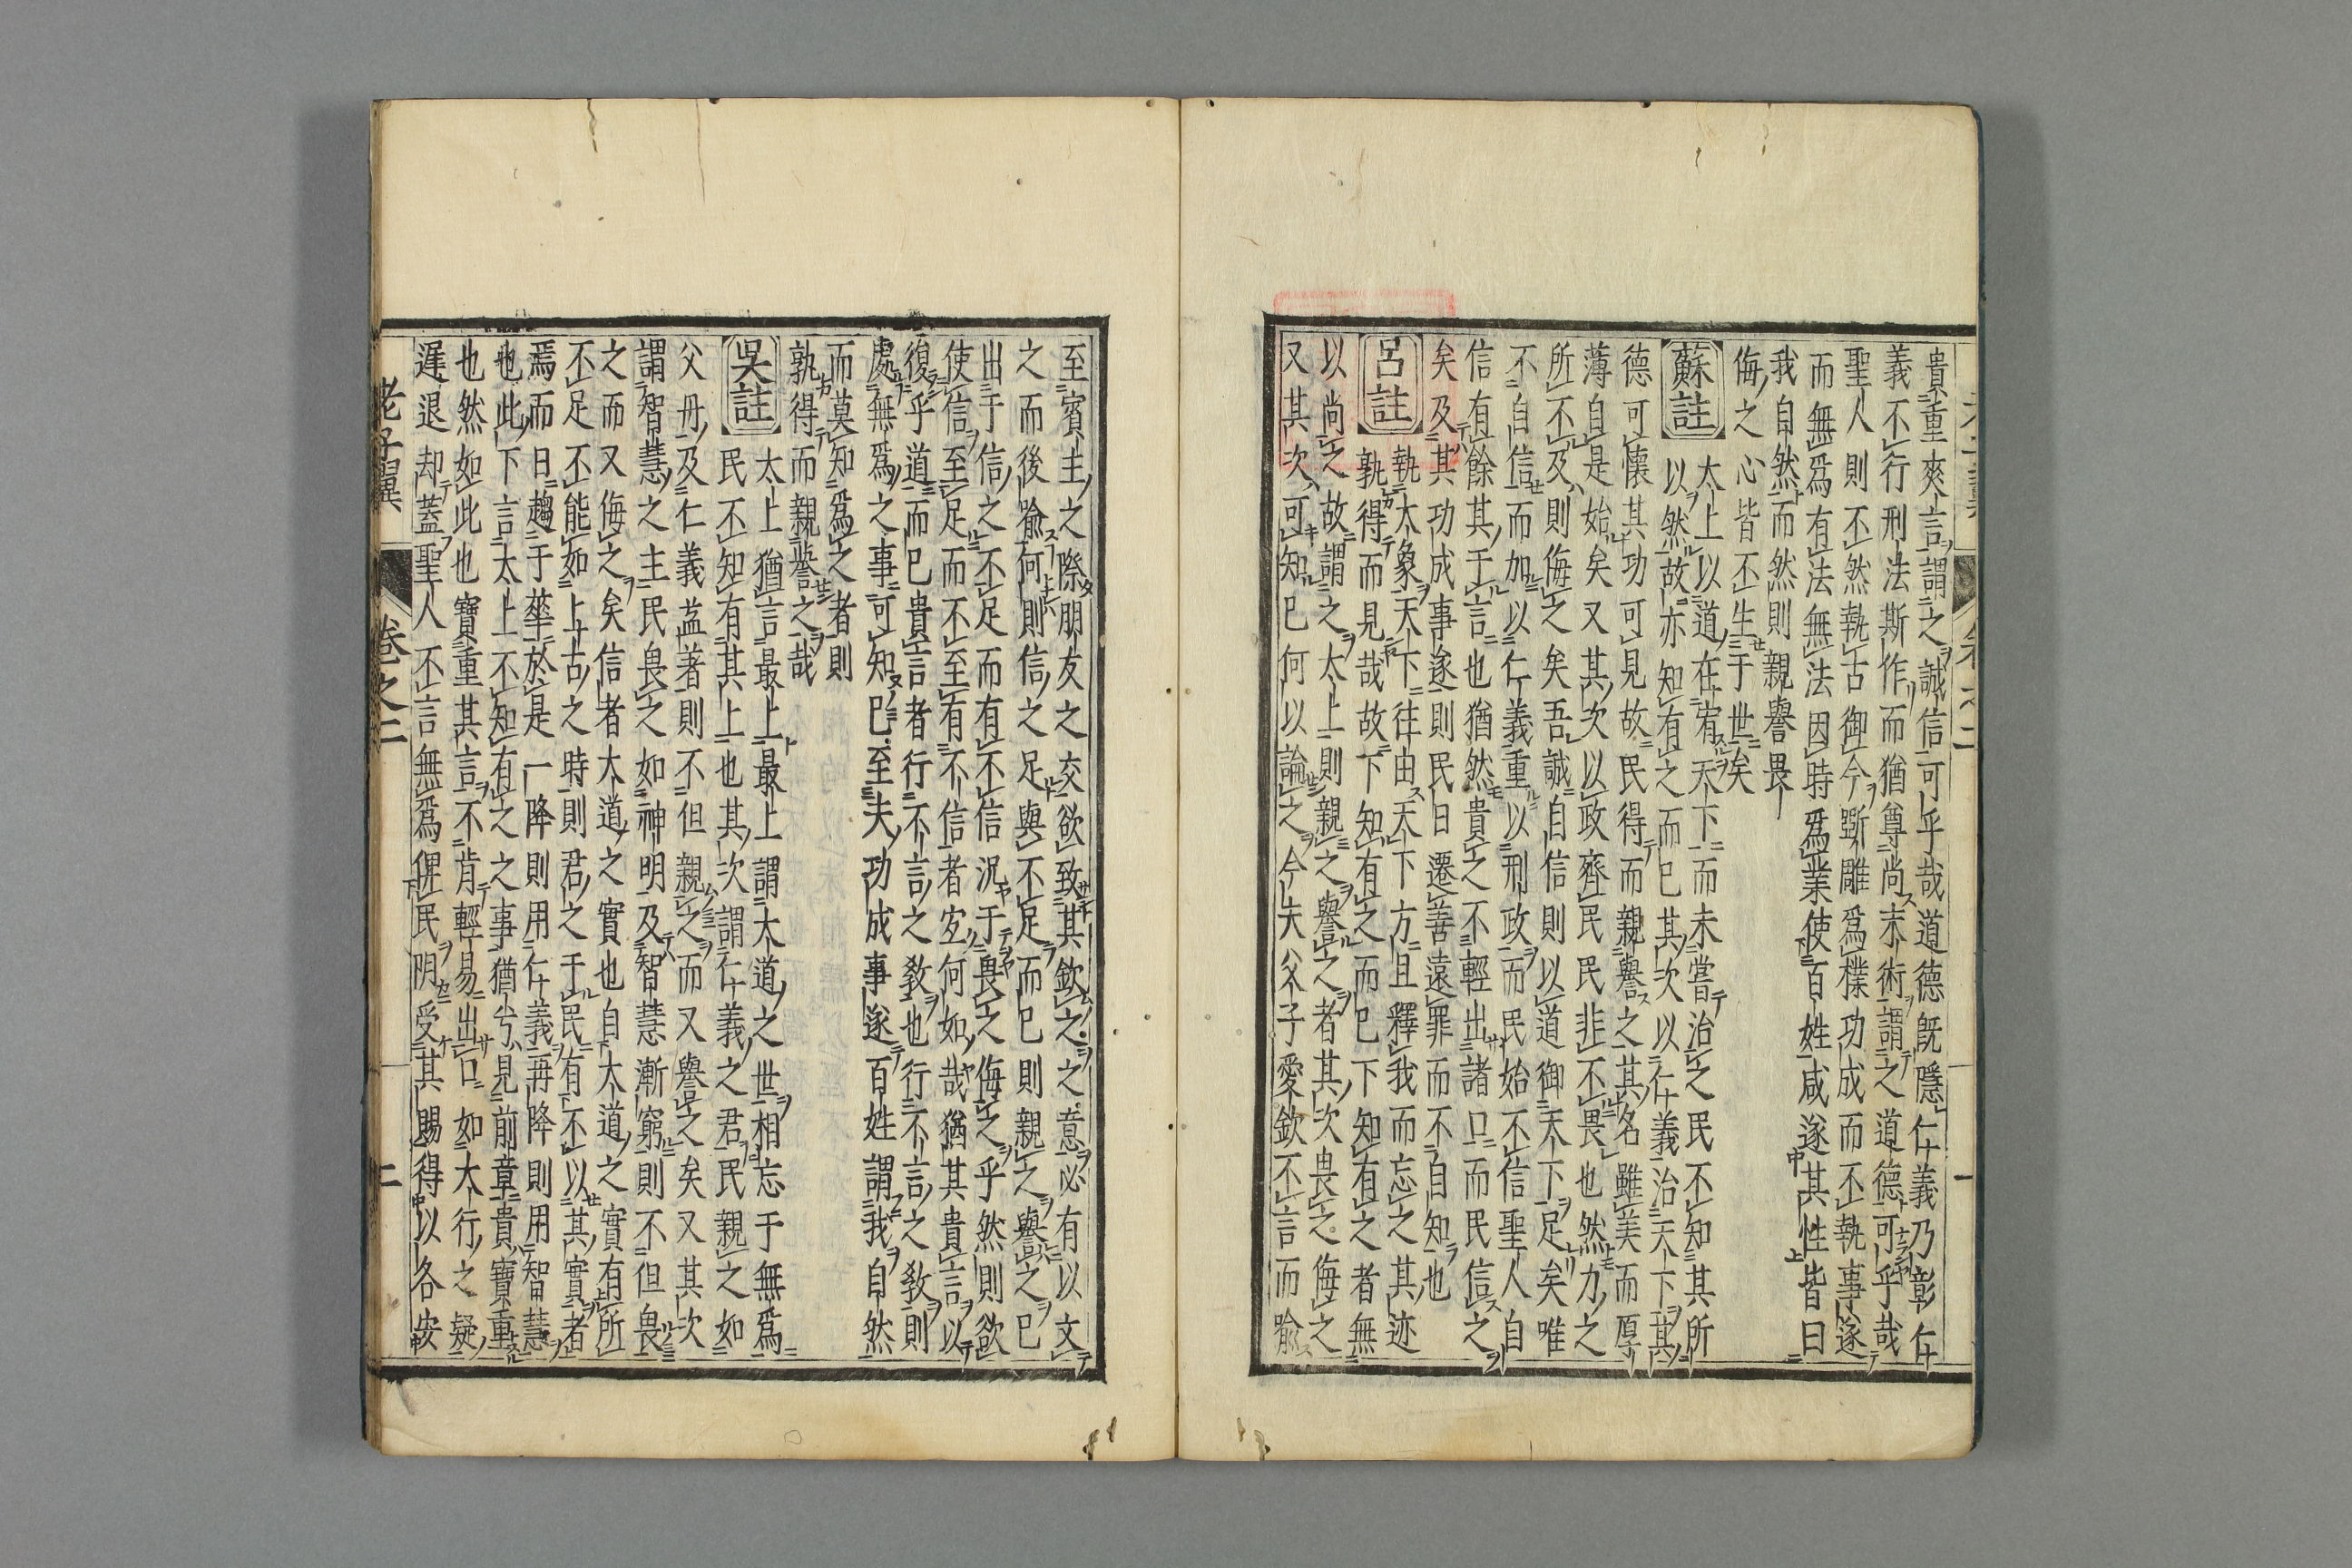 貴重爽言謂之誠信可乎哉道德既隱仁義乃彰仁
義不行刑法斯作而猶尊尚末術謂之道德可乎哉
聖人則不然執古御今斲雕爲樸功成而不執事遂
而無爲有法無法因時爲業使百姓咸遂其性皆曰
我自然而然則親譽畏
侮之心皆不生于世矣
蘇註
太上以道在宥天下而未嘗治之民不知其所
以然故亦知有之而已其次以仁義治天下其
德可懷其功可見故民得而親譽之其名雖美而厚
薄自是始矣又其次以政齊民民非不畏也然力之
所不及則侮之矣吾誠自信則以道御天下足矣唯
不自信而加以仁義重以刑政而民始不信聖人自
信有餘其于言也猶然貴之不輕出諸口而民信之
矣及其功成事遂則民日遷善遠罪而不自知也
呂註
執大象天下往由天下方且釋我而忘之其迹
孰得而見哉故下知有之而已下知有之者無
以尚之故謂之太上則親之譽之者其次畏之侮之
又其次可知已何以論之今夫父子愛欽不言而喩
至賓主之際朋友之交欲致其欽之之意必有以文
之而後喩何則信之足與不足而已則親之譽之已
出于信之不足而有不信況于畏之侮之乎然則欲
使信至足而不至有不信者宜何如哉猶其貴言以
復乎道而已貴言者行不言之敎也行不言之敎則
處無爲之事可知已至夫功成事遂百姓謂我自然
而莫知爲之者則
孰得而親譽之哉
吳註
太上猶言最上最上謂大道之世相忘于無爲
民不知有其上也其次謂仁義之君民親之如
父母及仁義益著則不但親之而又譽之矣又其次
謂智慧之主民畏之如神明及智慧漸窮則不但畏
之而又侮之矣信者大道之實也自大道之實有所
不足不能如上古之時則君之于民有不以其實者
焉而日趨于華於是一降則用仁義再降則用智慧
也此下言太上不知有之之事猶兮見前章貴寶重
也然如此也寶重其言不肯輕易出口如大行之疑
遲退却蓋聖人不言無爲俾民陰受其賜得以各安
老子翼
卷之二
二